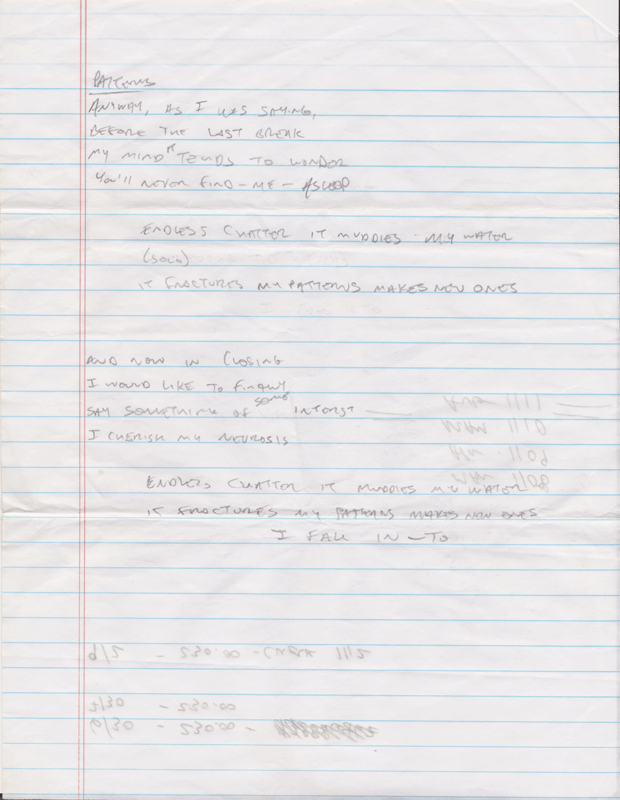 PATTERNS
ANYWAY, AS I WAS SAYING,
BEFORE THE LAST BREAK
MY MIND IT TENDS TO WONDER
YOU'LL NEVER FIND - ME - ASLEEP
ENDLESS CHATTER IT MUDDIES MY WATER
(SOLO)
IT FRACTURES MY PATTERNS MAKES NEW ONES
AND NOW IN CLOSING
I WOULD LIKE TO FINALLY
SAY SOMETHING OF SOME INTERST
I CHERISH MY NEUROSIS
ENDLESS CHATTER IT MUDDIES MY WATER
IT FRACTURES MY PATTERNS MAKES NEW ONES
I FALL IN - TO
9/2 - 230.00 - CHECK 1112
7/30 - 230.00
9/30 - 230.00 -